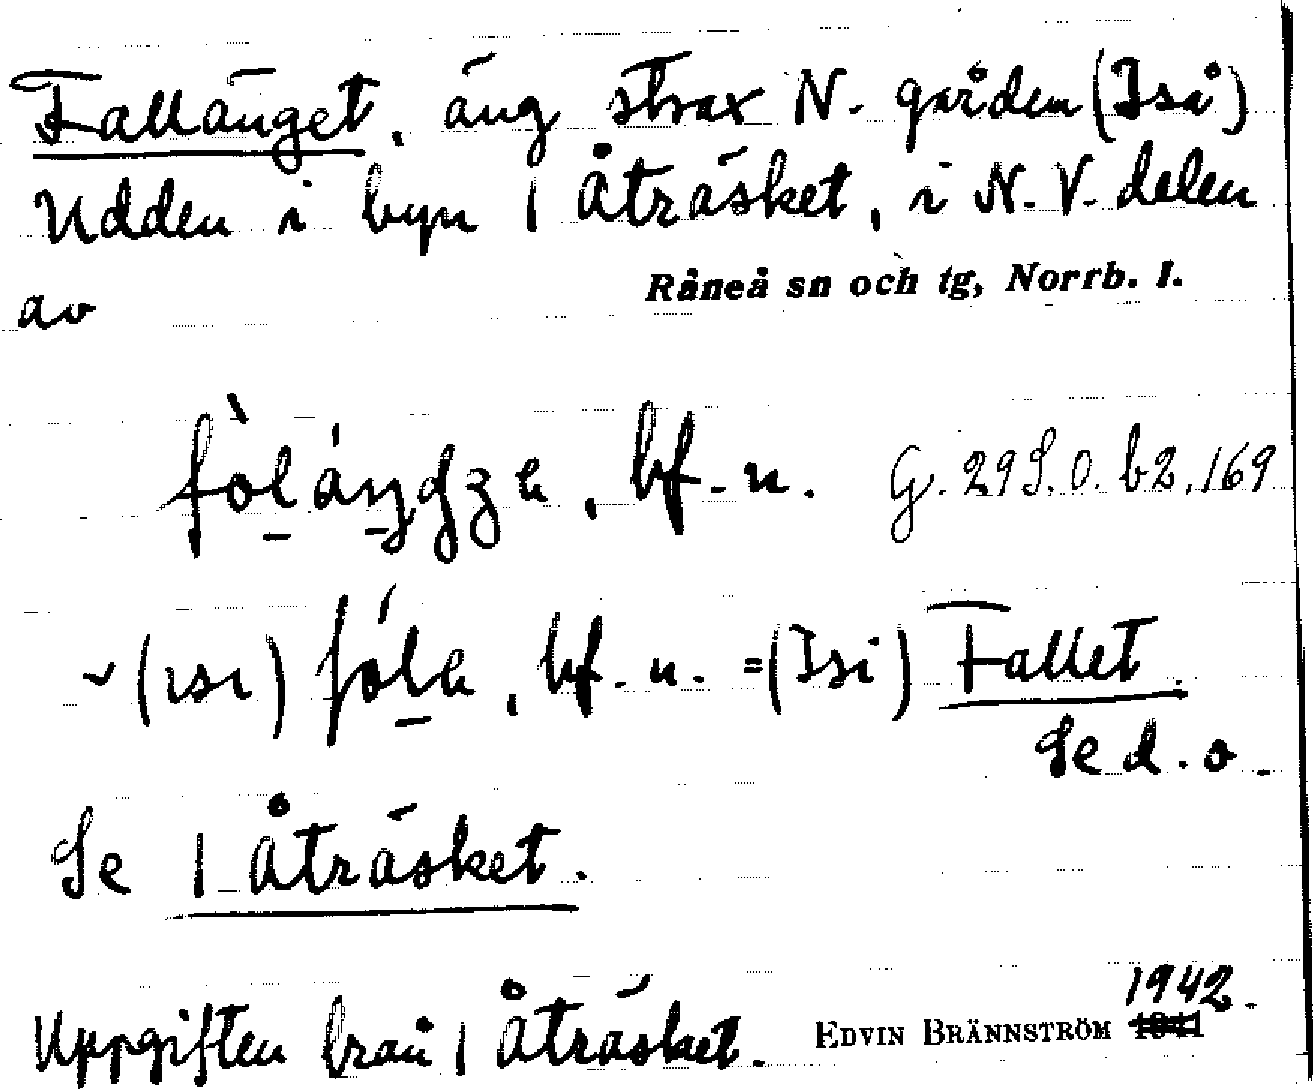 Fallänget, äng strax N. gården (Iså)
Udden i byn 1 Åträsket, i N.V. delen
av Råneå sn och tg, Norrb. l.
bf. n. G. 29 S. O. b2, 169
~ (ısı) bf. n. = (Isi) Fallet.
Se d. o.
Se 1 Åträsket.
1942.
Uppgiften från 1 Åträsket. EDVIN BRÄNNSTRÖM 1941